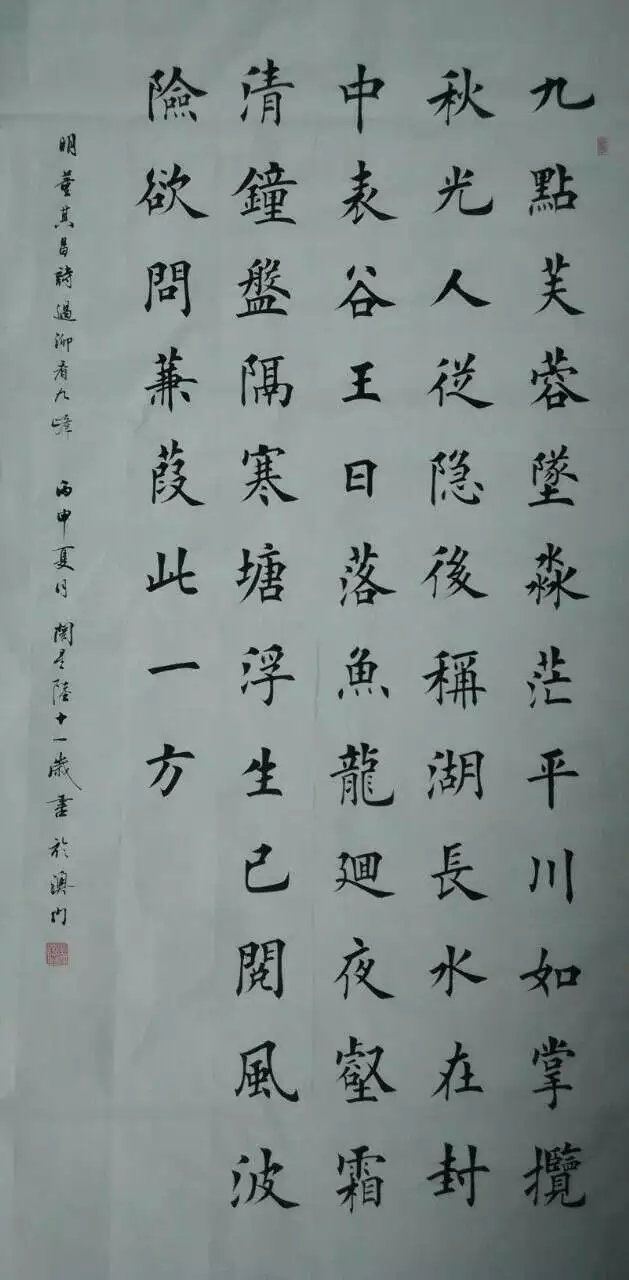 九點芙蓉墜淼茫平川如掌攬
秋光人從隐後稱湖長水在封
中表谷王日落魚龍廻夜壑霜
清鐘盤隔寒塘浮生已閱風波
險欲問蒹葭此一方
明董其昌詩過泖看九峰 丙申夏月 陸十一歲書於澳门